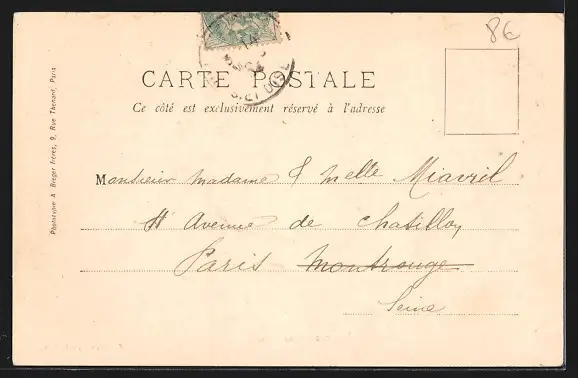 8€
CARTE POSTALE
Ce côté est exclusivement réservé à l'adresse
Monsieur Madame & Melle Miavril
Avenue de Chatillon
Paris Montrouge
Seine
Phototypie A. Breger frères, 9, Rue Thénard, Paris